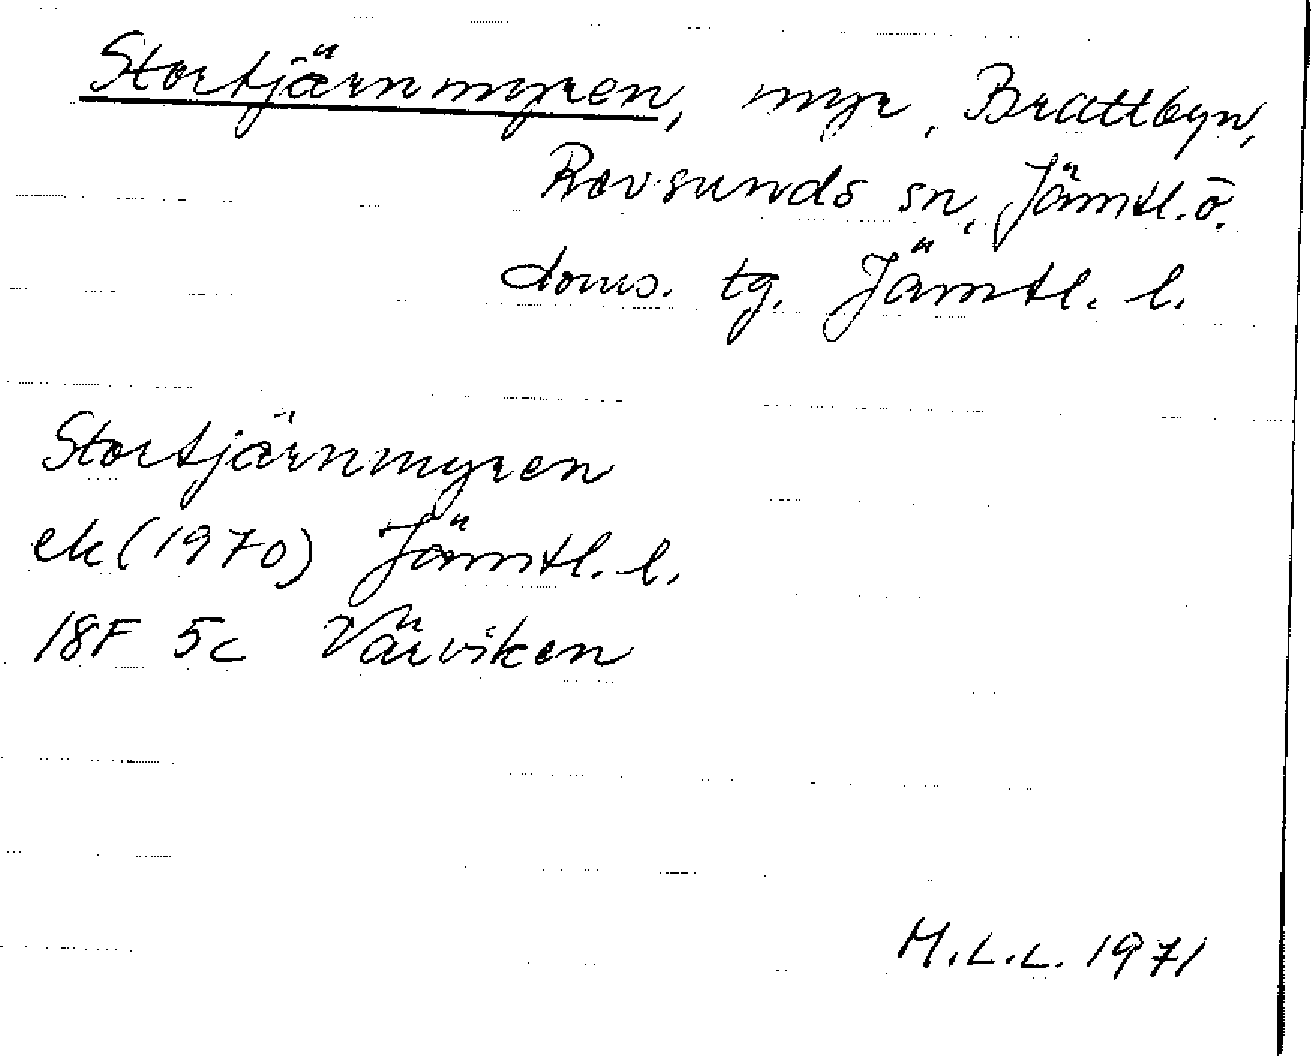 Stortjärnmyren, myr, Brattbyn,
Revsunds sn, Jämtl. ö.
doms. tg. Jämtl. l.
Stortjärnmyren
ek (1970) Jämtl. l.
18F 5c Värviken
M.L.L. 1971